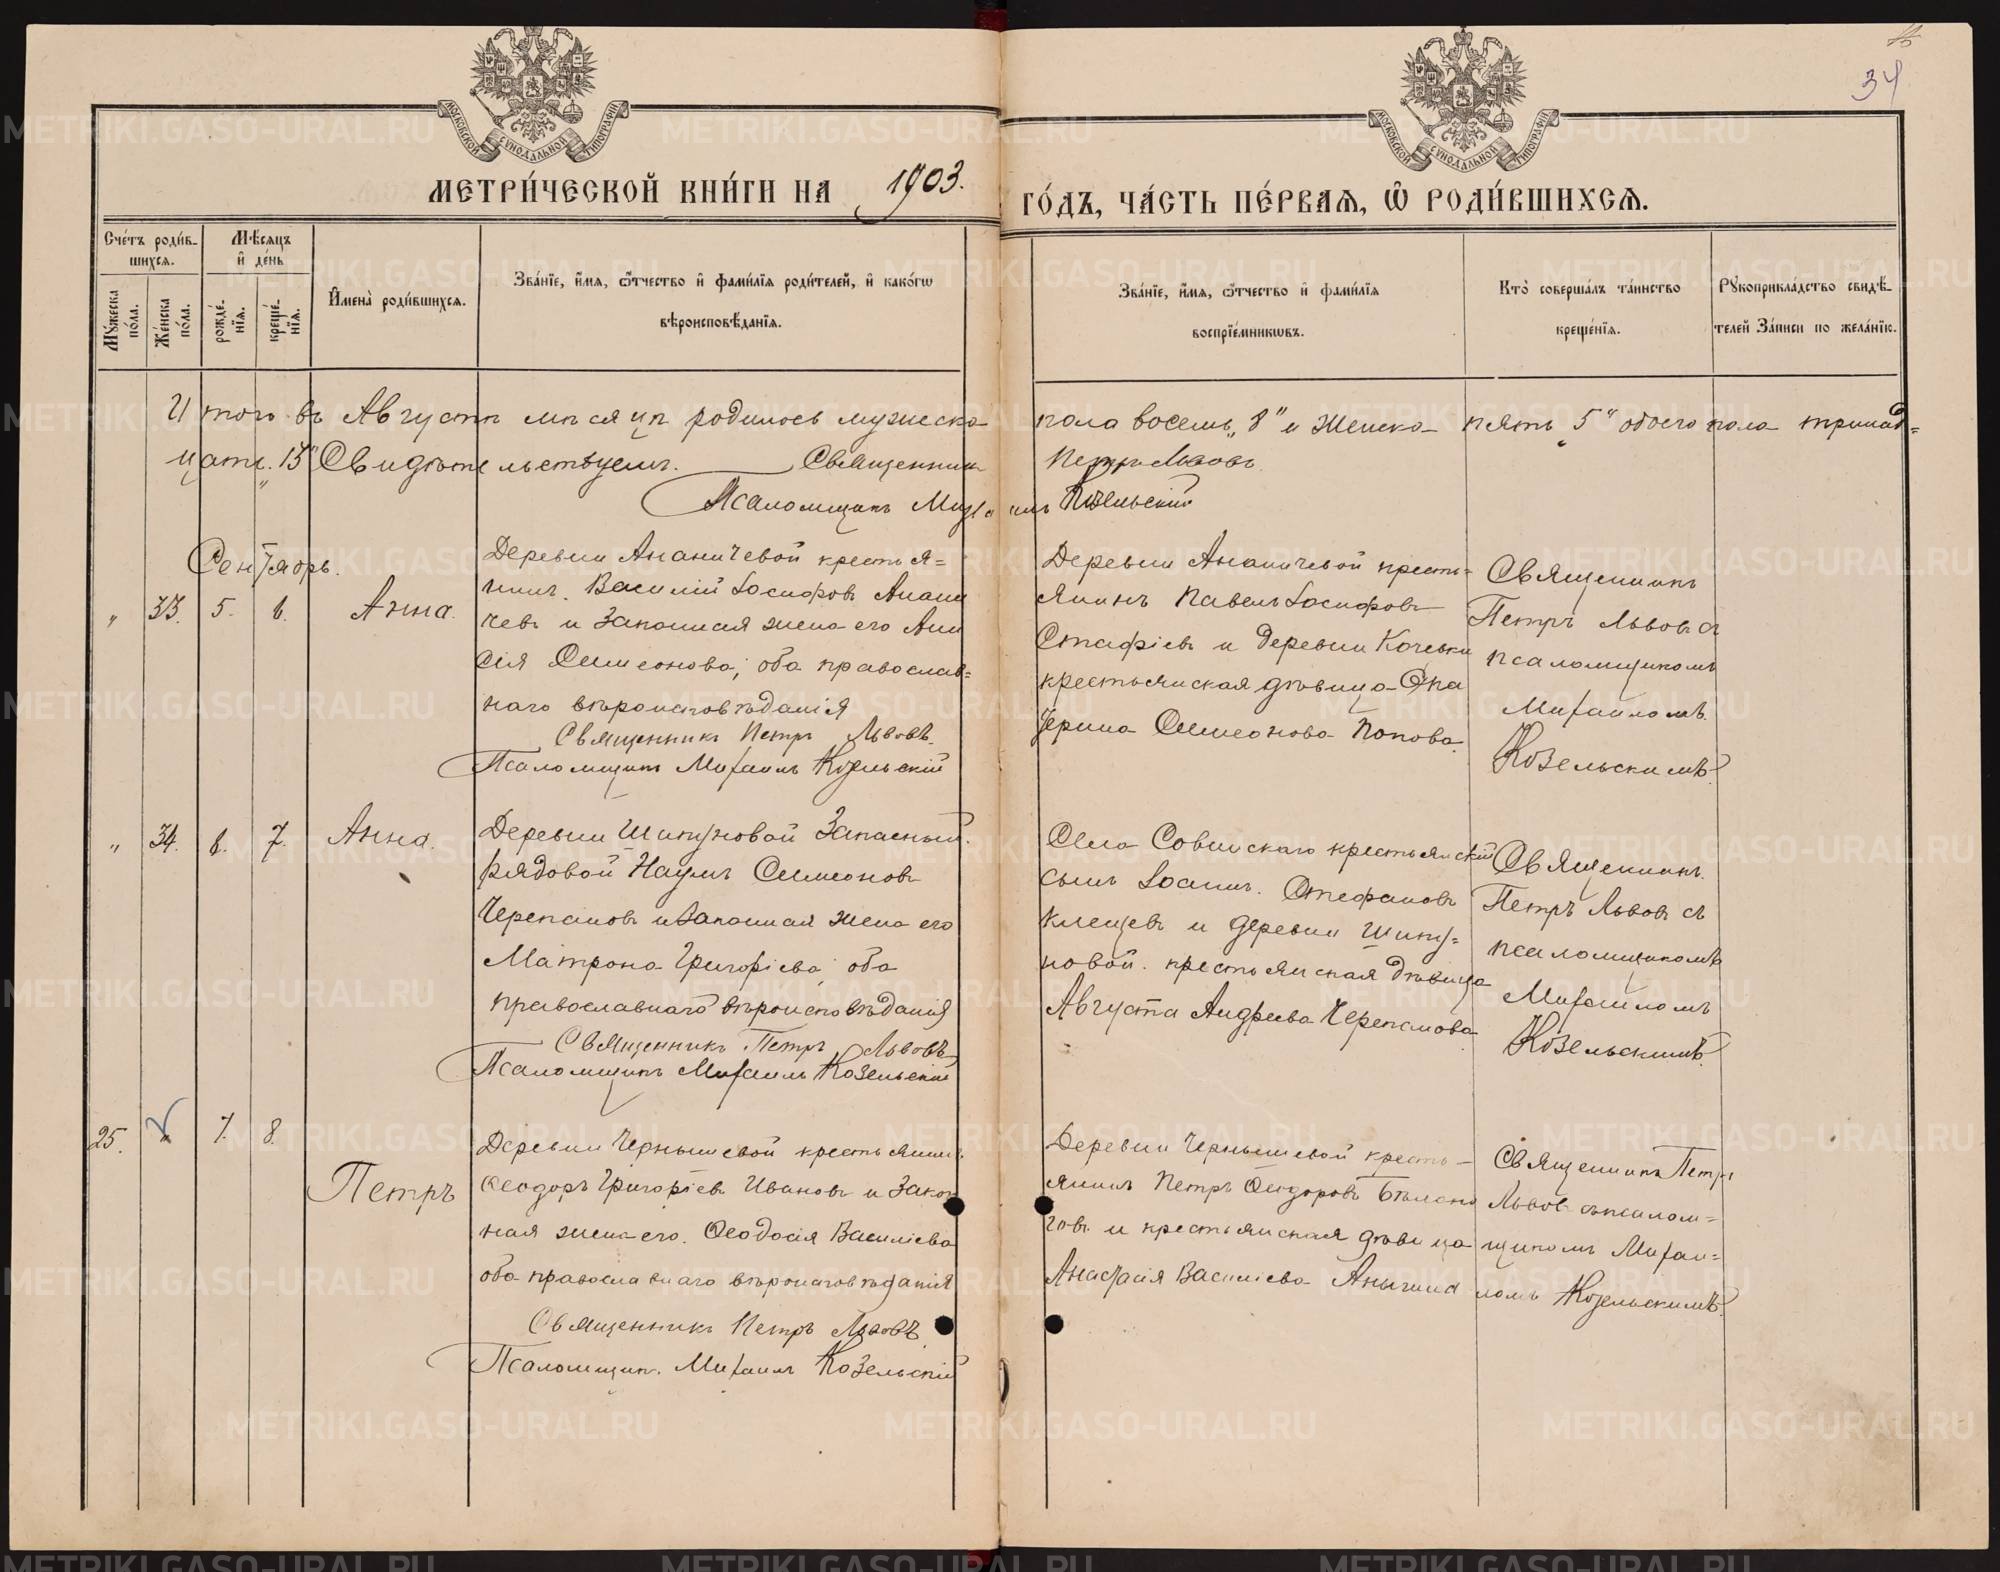 34
МОСКОВСКОЙ СѴНОДАЛЬНОЙ ТИПОГРАФІИ
МОСКОВСКОЙ СѴНОДАЛЬНОЙ ТИПОГРАФІИ
МЕТРИ́ЧЕСКОЙ КНИ́ГИ НА 1903. ГО́ДЪ, ЧА́СТЬ ПЕ́РВАѦ, Ѽ РОДИ́ВШИХСѦ.
Сче́тъ роди́в-
шихсѧ.
Мꙋжеска по́ла.
Же́нска по́ла.
Мѣ́сѧцъ
и҆ де́нь
рожде́-
нїѧ.
креще́-
нїѧ.
И҆мена̀ роди́вшихсѧ.
Зва́нїе, и҆́мѧ, ѻ҆́тчество и҆ фами́лїѧ роди́телей, и҆ како́гѡ
вѣроисповѣ́данїѧ.
Зва́нїе, и҆́мѧ, ѻ҆́тчество и҆ фами́лїѧ
воспрїе́мникѡвъ.
Кто̀ соверша́лъ та́инство
креще́нїѧ.
Рꙋкоприкла́дство свидѣ́-
телей За́писи по жела́нїю.
Итого въ Августѣ мѣсяцѣ родилось мужеска пола восемь „8" и женска пять „5" обоего пола тринад=
цать „13" Свидѣтельствуемъ. Священникъ Петръ Львовъ
Псаломщикъ Михаилъ Козельскій
Сентябрь.
„ 33. 5. 6. Анна.
Деревни Ананичевой крестья=
нинъ Василій Іосифовъ Анани
чевъ и законная жена его Ани
сія Симеонова; оба православ=
наго вѣроисповѣданія
Священникъ Петръ Львовъ.
Псаломщикъ Михаилъ Козельскій
Деревни Ананичевой кресть=
янинъ Павелъ Іосифовъ
Стафіевъ и деревни
крестьянская дѣвица
Симеонова Попова.
Священникъ
Петръ Львовъ съ
псаломщикомъ
Михаиломъ
Козельскимъ.
„ 34. 6. 7. Анна.
Деревни Шипуновой Запасный
рядовой Наумъ Симеоновъ
Черепановъ и законная жена его
Матрона Григоріева; оба
православнаго вѣроисповѣданія
Священникъ Петръ Львовъ
Псаломщикъ Михаилъ Козельскій
Села Совинскаго крестьянскій
сынъ Іоаннъ Стефановъ
Клещевъ и деревни Шипу=
новой крестьянская дѣвица
Августа Андреева Черепанова
Священникъ
Петръ Львовъ съ
псаломщикомъ
Михаиломъ
Козельскимъ.
25. „ 7. 8. Петръ
Деревни Чернышевой крестьянинъ
Ѳеодоръ Григоріевъ Ивановъ и закон
ная жена его Ѳеодосія Василіева
оба православнаго вѣроисповѣданія
Священникъ Петръ Львовъ
Псаломщикъ Михаилъ Козельскій
Деревни Чернышевой кресть-
янинъ Петръ Ѳеодоровъ
и крестьянская дѣвица
Анастасія Василіева
Священникъ Петръ
Львовъ съ псалом=
щикомъ Михаи=
ломъ Козельскимъ.
METRIKI.GASO-URAL.RU